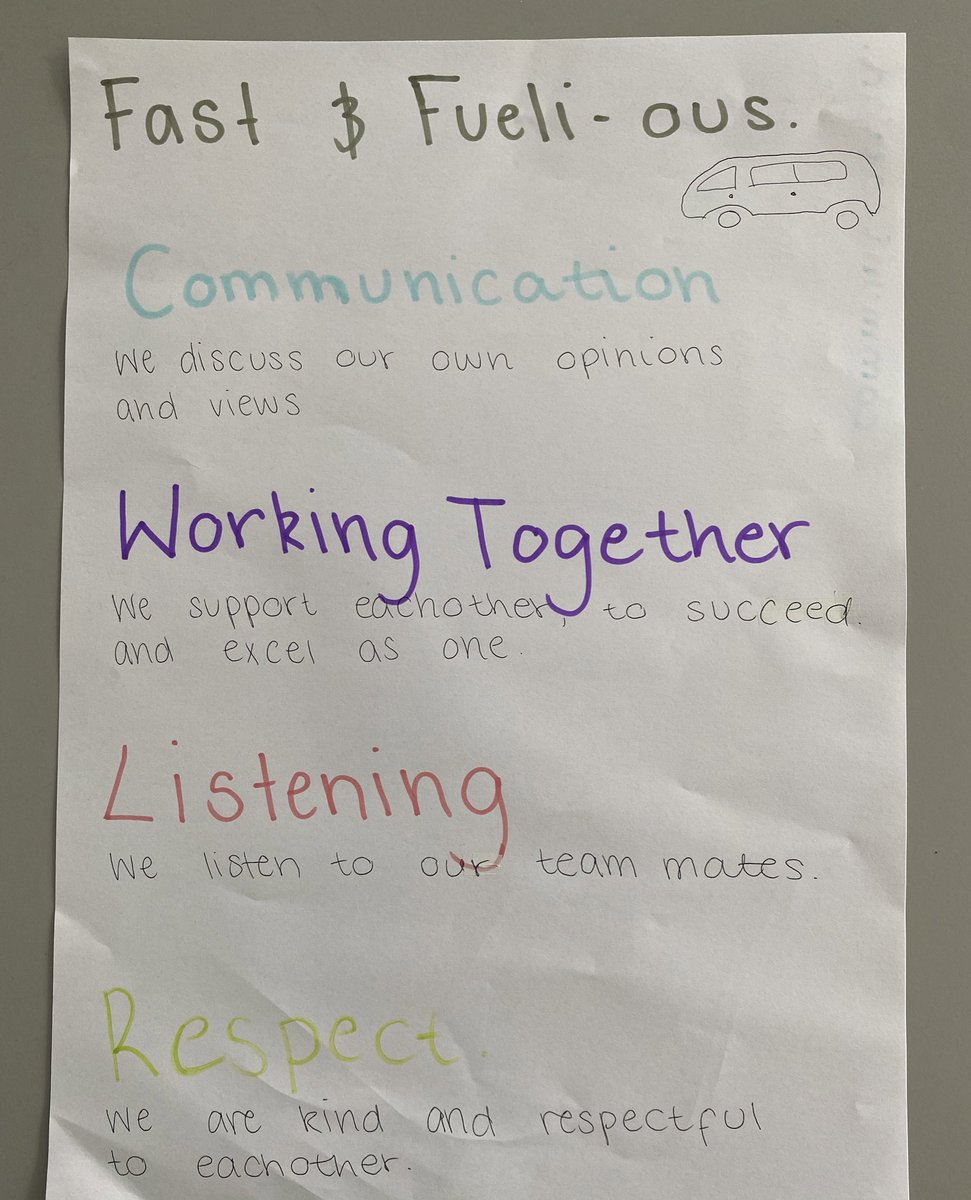 Fast & Fueli-ous.
Communication
We discuss our own opinions
and views
Working Together
We support eachother, to succeed.
and excel as one.
Listening
We listen to our team mates.
Respect.
We are kind and respectful
to eachother.